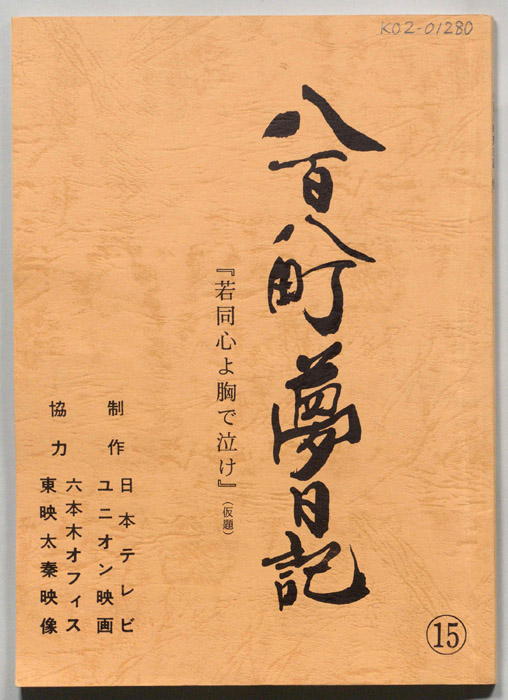 K02-01280
八百八町夢日記
『若同心よ胸で泣け』(仮題)
制作
日本テレビ
ユニオン映画
協力
六本木オフィス
東映太秦映像
⑮